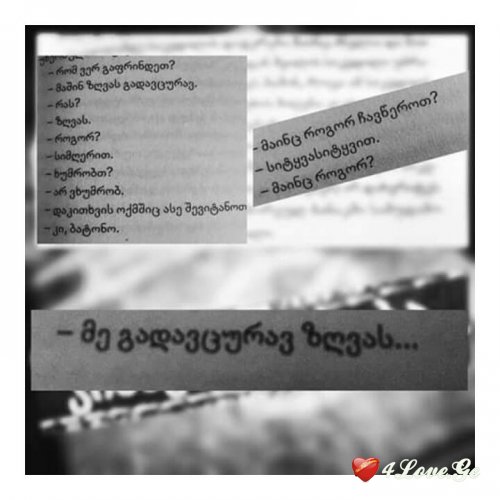 – რომ ვერ გაფრინდეთ?
– მაშინ ზღვას გადავცურავ.
– რას?
– ზღვას.
– როგორ?
– სიმღერით.
– ხუმრობთ?
– არ ვხუმრობ.
– დაკითხვის ოქმშიც ასე შევიტანოთ
– კი, ბატონო.
– მაინც როგორ ჩავწეროთ?
– სიტყვასიტყვით.
– მაინც როგორ?
– მე გადავცურავ ზღვას...
4Love.Ge